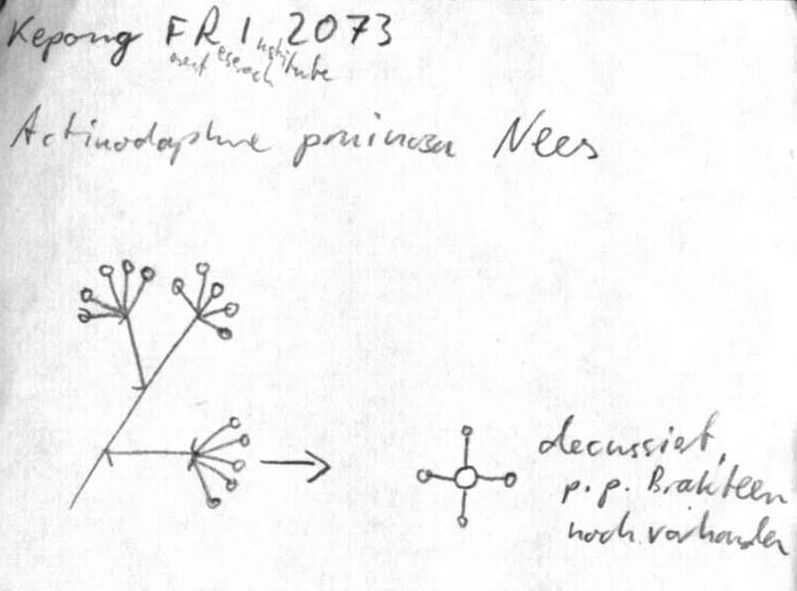 Kepong FRI 2073
orest esearch nstitute
Actinodaphne pruinosa Nees
decussiert,
p.p. Brakteen
noch vorhanden